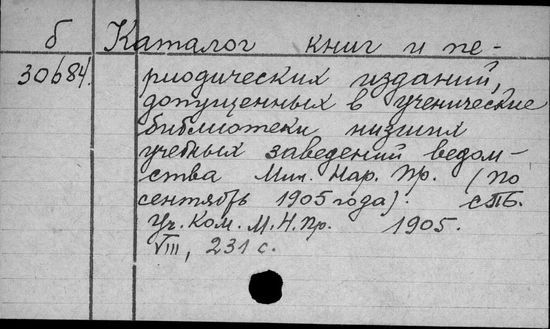 б Каталог книг и пе-
30684. риодических изданий,
допущенных в ученические
библиотеки низших
учебных заведений ведом-
ства Мин. Нар. Пр. (по
сентябрь 1905 года). СПБ.
Уч. Ком. М. Н. Пр. 1905.
VIII, 231 с.